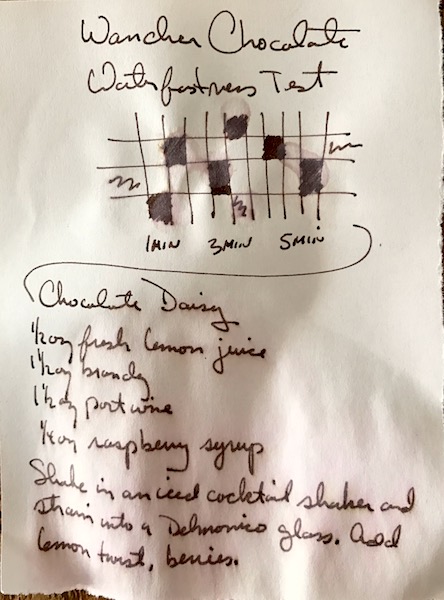 Wancher Chocolate
Waterfastness Test
1 MIN 3 MIN 5 MIN
Chocolate Daisy
1/2 oz fresh lemon juice
1 1/2 oz brandy
1 1/2 oz port wine
1/4 oz raspberry syrup
Shake in an iced cocktail shaker and
strain into a Delmonico glass. Add
lemon twist, berries.